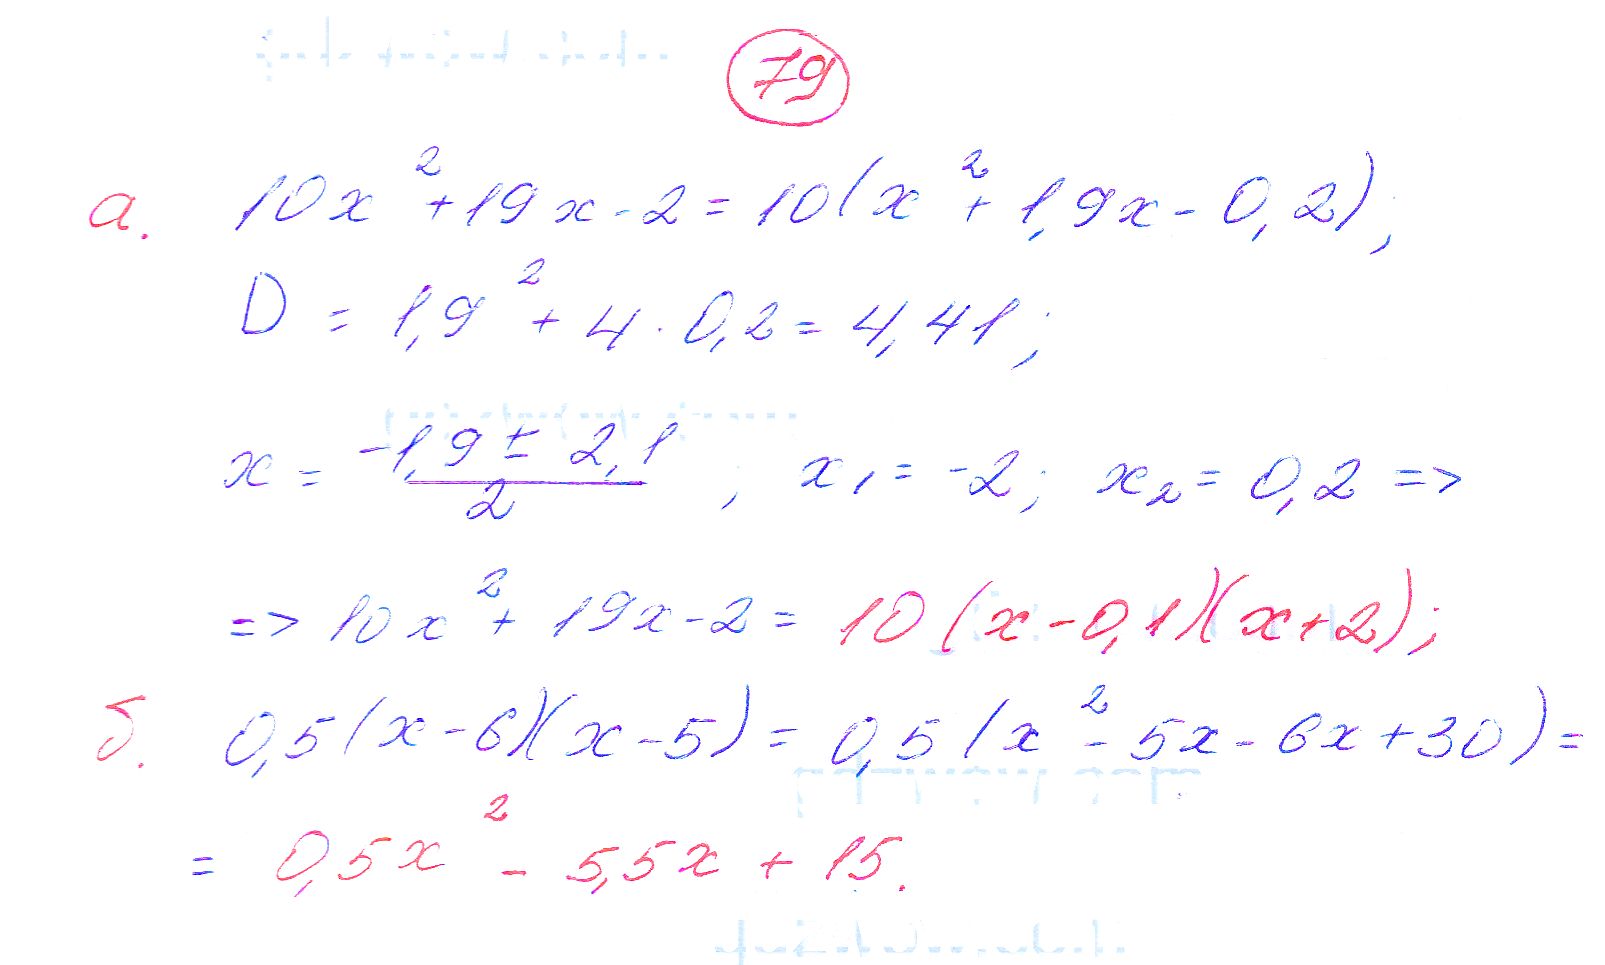 79
а. 10x² + 19x - 2 = 10(x² + 1,9x - 0,2),
D = 1,9² + 4 · 0,2 = 4,41;
x = (-1,9 ± 2,1)/2, x₁ = -2; x₂ = 0,2 =>
=> 10x² + 19x - 2 = 10(x - 0,1)(x + 2);
б. 0,5(x - 6)(x - 5) = 0,5(x² - 5x - 6x + 30) =
= 0,5x² - 5,5x + 15.